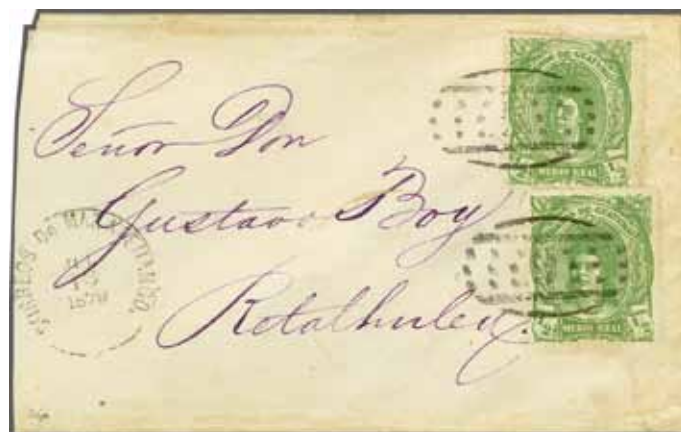 Señor Don
Gustavo Boy
Retalhuleu.
CORREOS DE MAZATENANGO.
1879
MEDIO REAL
MEDIO REAL